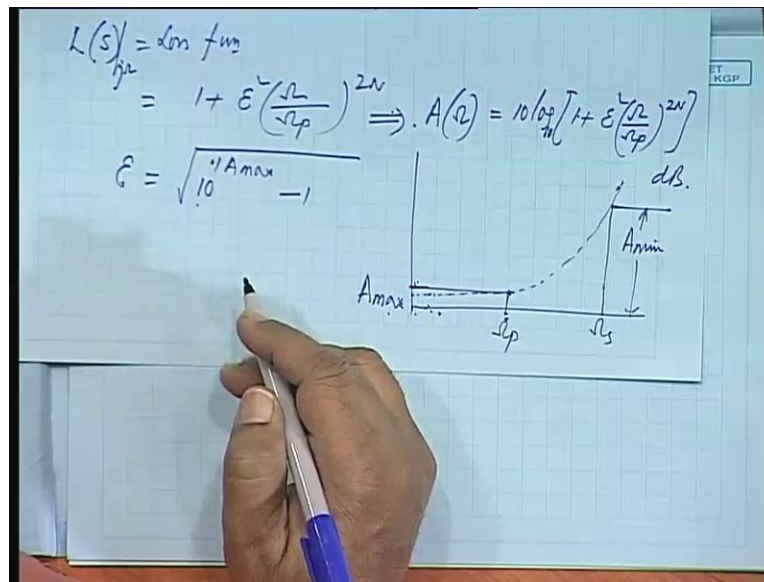 L(S)|jΩ = Loss fun
= 1 + ε²(Ω/Ωp)^2N ⟹ A(Ω) = 10 log10[1 + ε²(Ω/Ωp)^2N] dB.
ε = √(10^.1Amax − 1)
Amax
Amin
Ωp
Ωs
ET
KGP